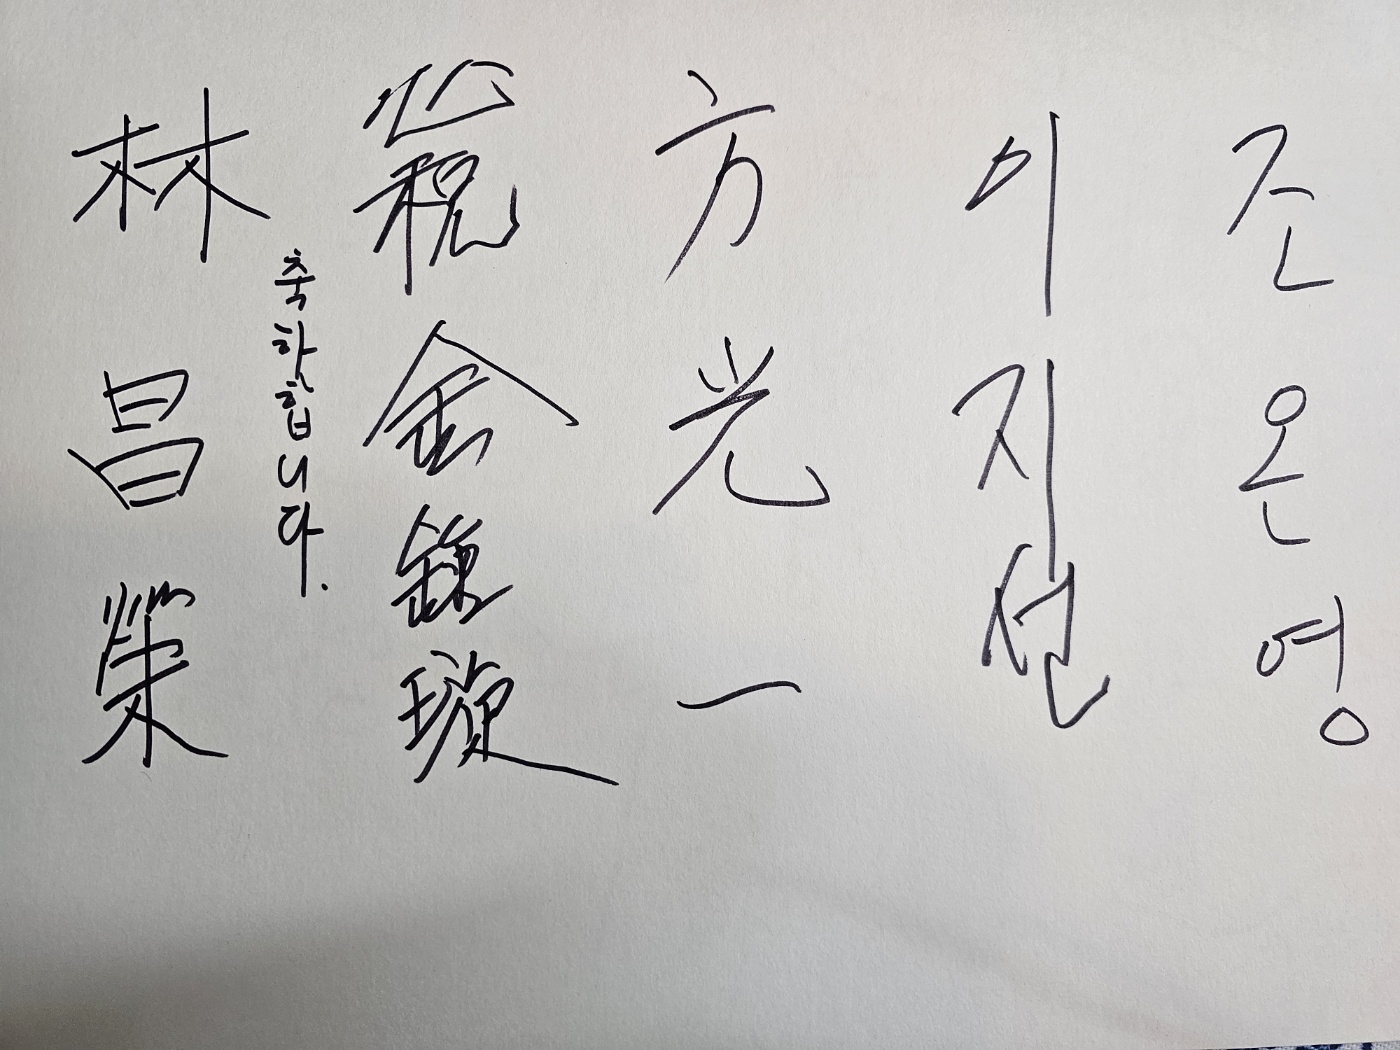 조온영
이지선
方光一
金璇
축하합니다.
林昌榮